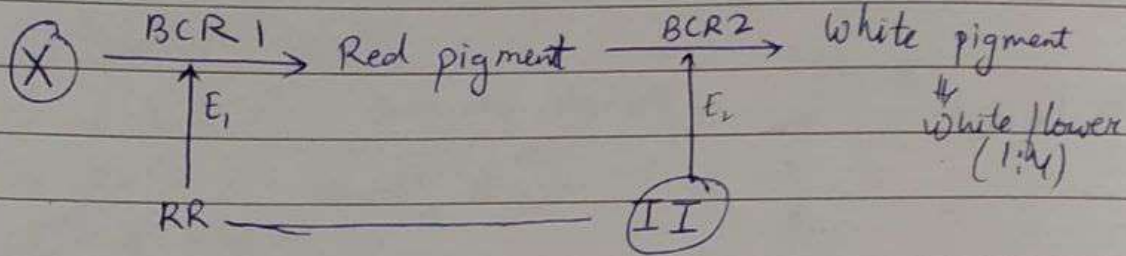 X BCR 1 Red pigment BCR2 White pigment
E₁ E₂
White flower
(1:4)
RR II